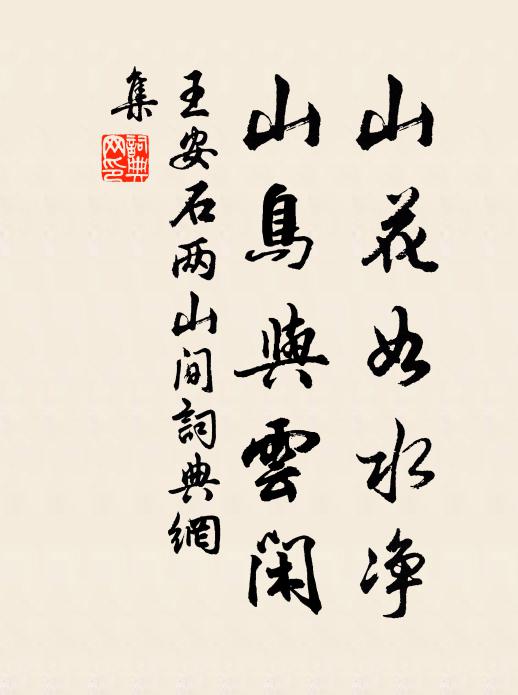 山花如水净
山鳥與雲閑
王安石两山間詞典網
集
詞典
网印